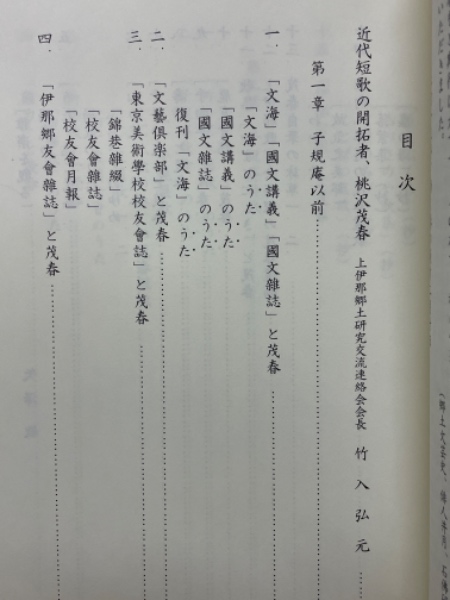 いただきました。
(郷土文芸史、
目次
近代短歌の開拓者、桃沢茂春 上伊那郷土研究交流連絡会会長 竹入弘元……
第一章 子規庵以前……………………
一.「文海」「國文講義」「國文雜誌」と茂春…………
「文海」のうた
「國文講義」のうた
「國文雜誌」のうた
復刊「文海」のうた
二.「文藝倶楽部」と茂春……………………
三.「東京美術學校校友會誌」と茂春……………………
「錦巷雜綴」
「校友會雜誌」
「校友會月報」
四.「伊那郷友會雜誌」と茂春……………………